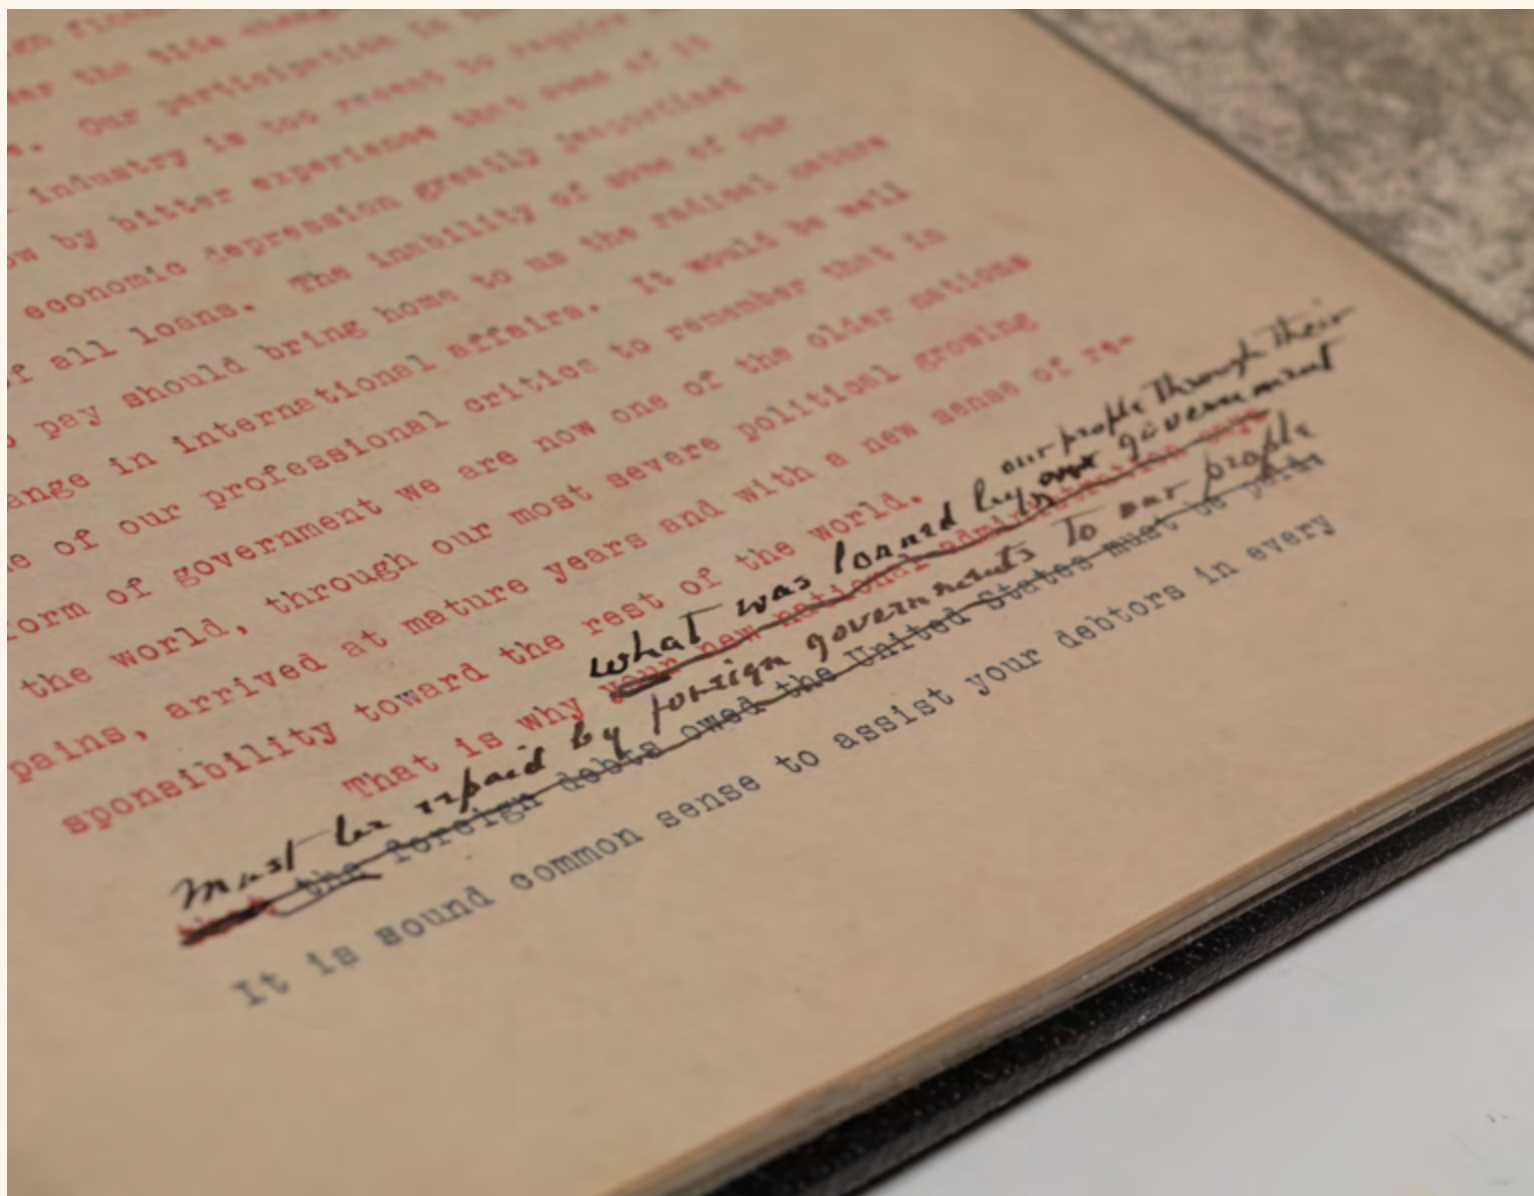 er the tide
. Our participation in
industry is too recent to require
ow by bitter experience that some of it
economic depression greatly jeopardized
of all loans. The inability of some of our
pay should bring home to us the radical nature
ange in international affairs. It would be well
e of our professional critics to remember that in
form of government we are now one of the older nations
the world, through our most severe political growing
pains, arrived at mature years and with a new sense of re-
sponsibility toward the rest of the world.
our people through their
what was loaned by our government
That is why your new national administration says
must be repaid by foreign governments to our people
that the foreign debts owed the United States must be paid
It is sound common sense to assist your debtors in every